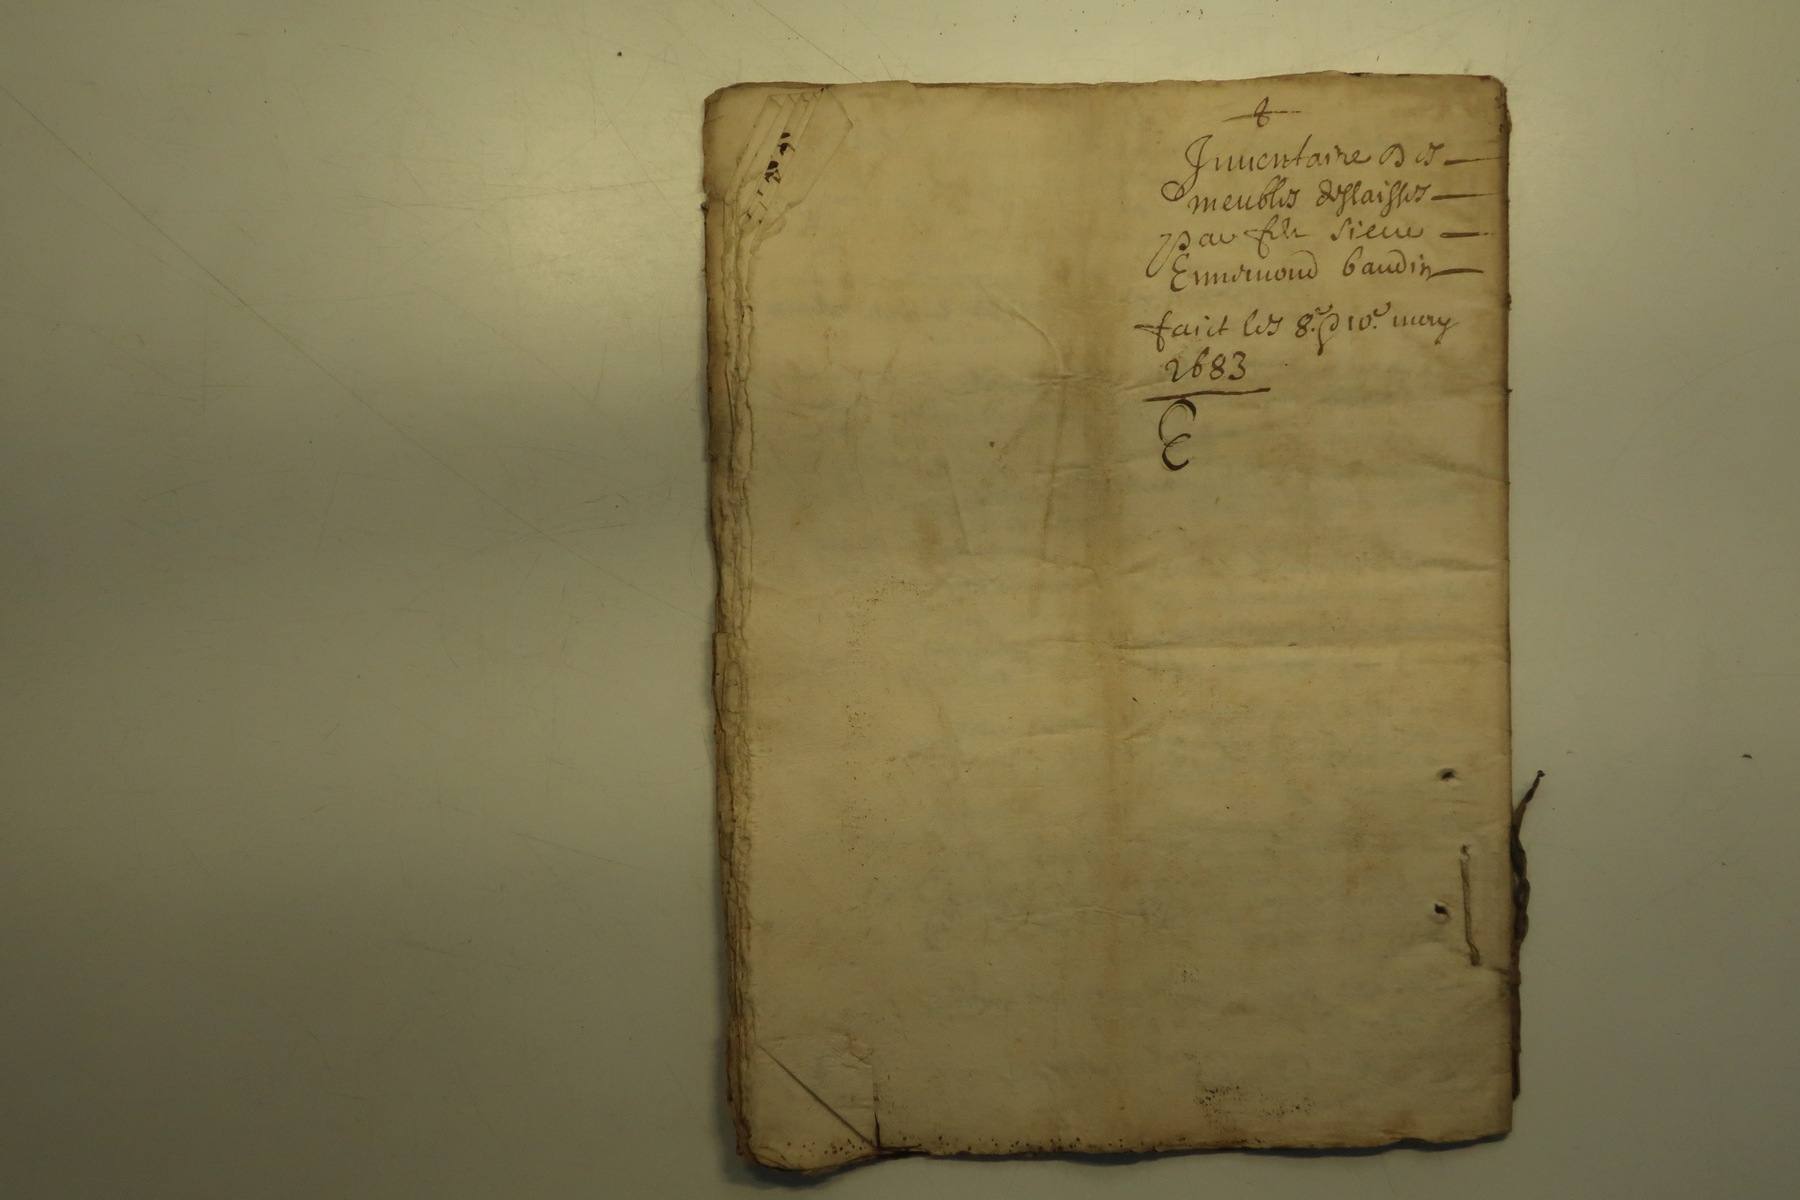 Inuentaire des
meubles deslaisses
par feu sieur
Ennemond baudin
faict les 8.e & 10.e may
1683